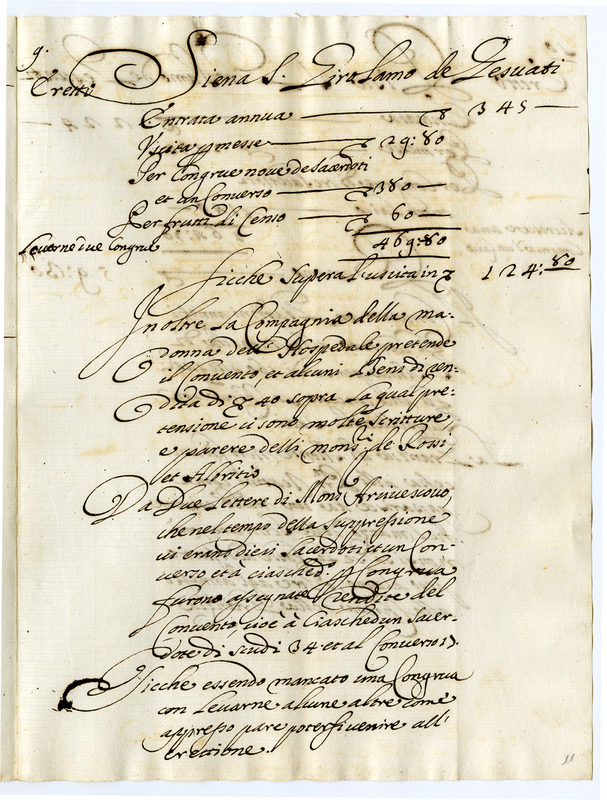 9.
Eretti Siena S. Girolamo de Gesuati
Entrata annua ——— ▽ 345 —
Uscita p messe ——— ▽ 29:80
Per Congrue nove de Sacerdoti
et un Converso ——— ▽ 380 —
Per frutti di Censo ——— ▽ 60 —
Levarne due Congrue
469:80
Sicche supera l'uscita in ▽ 124:80
Inoltre la Compagnia della ma-
donna dell' Hospedale pretende
il Convento, et alcuni Beni di ren-
dita di ▽ 40 sopra la qual pre-
tensione ci sono molte scritture,
e parere delli monsri de Rossi,
et Albritio
Da Due lettere di Monsr Arcivescovo,
che nel tempo della Suppressione
vi erano dieci Sacerdoti et un Con-
verso et à ciasched.o p Congrua
furono assegnate rendite del
Convento, cioè à Ciaschedun Sacer-
dote di scudi 34 et al Converso 17.
Sicche essendo mancato una Congrua
con levarne alcune altre come
appresso pare potersi venire all'
erettione.
11